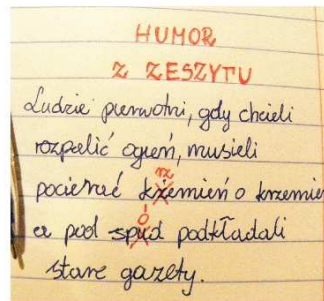 HUMOR
Z ZESZYTU
Ludzie pierwotni, gdy chcieli
rozpalić ogień, musieli
pocierać kżemień o krzemień
rz
a pod spud podkładali
ó
stare gazety.